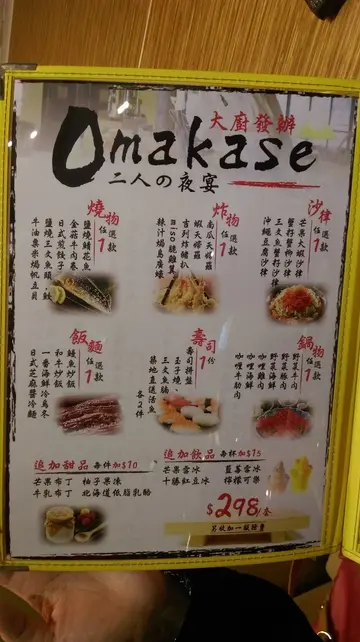 大廚發辦
Omakase
二人の夜宴
沙律
任選1款
芒果大蝦沙律
蟹籽蟹柳沙律
三文魚蟹籽沙律
沖繩豆腐沙律
炸物
任選1款
南瓜天婦羅
蝦天婦羅
吉列炸豬扒
miso脆雞翼
辣汁焗鳥廣蠔
燒物
任選1款
鹽燒鯖花魚
金菇牛肉卷
日式煎餃子
鹽燒三文魚頭/鮫
牛油粟米焗帆立貝
鍋物
任選1款
野菜牛肉
野菜豚肉
野菜海鮮
咖哩雞肉
咖哩海鮮
咖哩牛肋肉
壽司
1份
壽司拼盤
玉子燒、
三文魚腩、
築地直送活魚
各2件
飯麵
任選1款
鰻魚炒飯
和牛炒飯
一番海鮮冷烏冬
日式芝麻醬冷麵
追加甜品 每件加$10
芒果布丁 柚子果凍
牛乳布丁 北海道低脂乳酪
追加飲品 每杯加$15
芒果雪冰 藍莓雪冰
十勝紅豆冰 檸檬可樂
$298/套
另收加一服務費